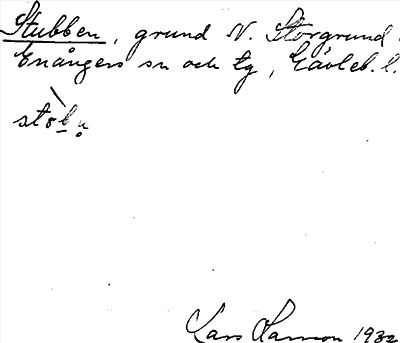 Stubben, grund N. Storgrund
Enångers sn och tg, Gävleb. l.
stob̠n̥
Lars Hamson 1932